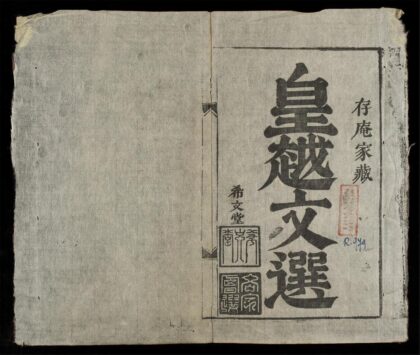 存庵家藏
皇越文選
希文堂
R.972